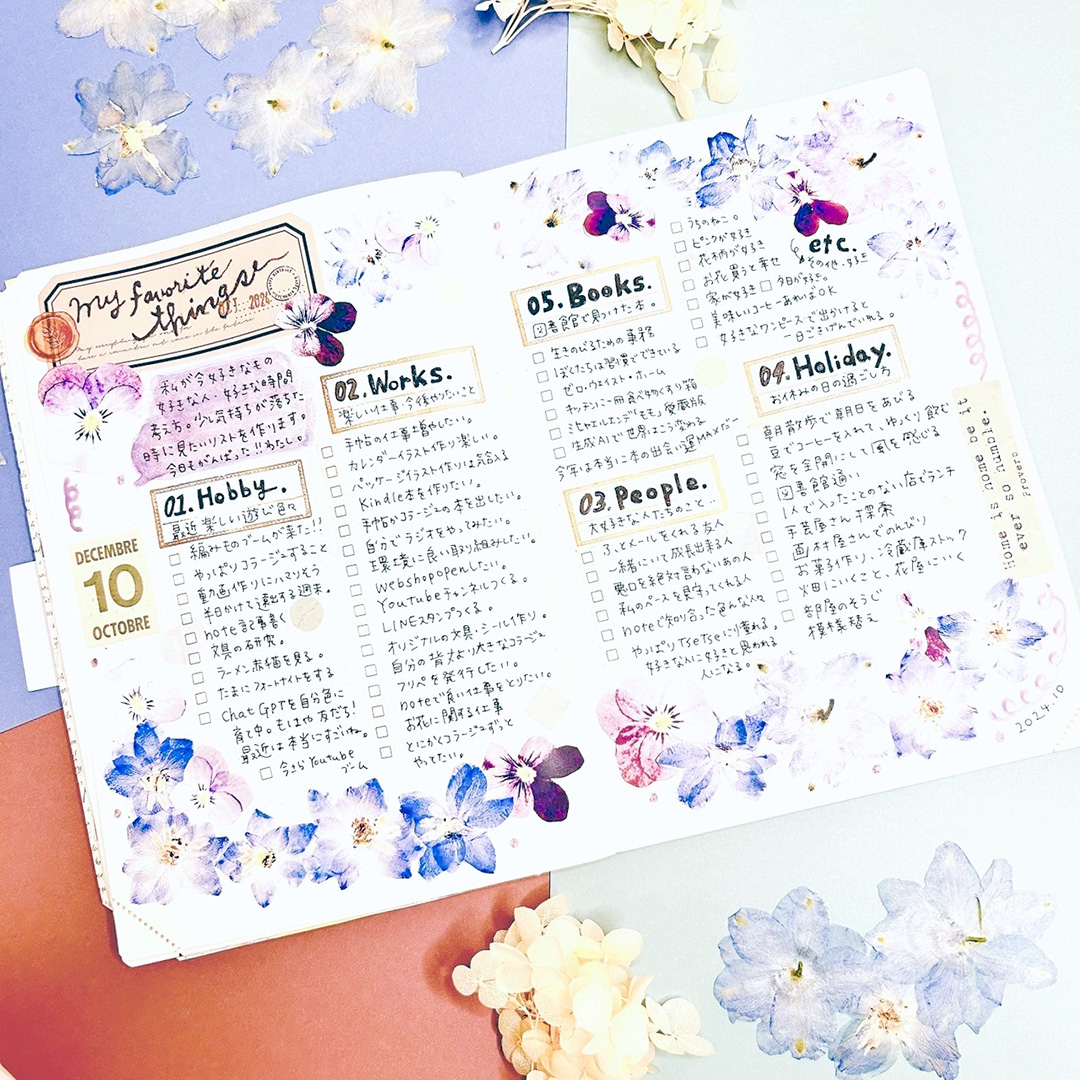 my favorite
things
SEPT. 2024
私が今好きなもの
好きな人・好きな時間
考え方。少し気持ちが落ちた
時に見たいリストを作ります。
今日もがんばった!!わたし。
DECEMBRE
10
OCTOBRE
01. Hobby.
最近楽しい遊び色々
□ 編みものブームが来た!!
□ やっぱりコラージュすること
□ 動画作りにハマりそう
□ 半日かけて遠出する週末。
□ note記事書く
□ 文具の研究。
□ ラーメン赤猫を見る。
□ たまにフォートナイトをする
□ ChatGPTを自分色に
育て中。もはや友だち!
最近は本当にすごいね。
□ 今さらYoutube
ブーム
02. Works.
楽しい仕事・今後やりたいこと
□ 手帖の仕事増やしたい。
□ カレンダーイラスト作り楽しい。
□ パッケージイラスト作りは気合入る
□ Kindle本を作りたい。
□ 手帖かコラージュの本を出したい。
□ 自分でラジオをやってみたい。
□ 環境に良い取り組みしたい。
□ Webshopopenしたい。
□ Youtubeチャンネルつくる。
□ LINEスタンプつくる。
□ オリジナルの文具・シール作り。
□ 自分の背丈より大きなコラージュ
□ フリペを発行したい。
□ noteで食い仕事をとりたい。
□ お花に関する仕事
□ とにかくコラージュずっと
やってたい。
05. Books.
図書館で見つけた本。
□ 生きのびるための事務
□ ぼくたちは習慣でできている
□ ゼロ・ウェイスト・ホーム
□ キッチンに一冊食べ物くすり箱
□ ミヒャエルエンデ「モモ」愛蔵版
□ 生成AIで世界はこう変わる
今年は本当に本の出会い運MAXだー
03. People.
大好きな人たちのこと…
□ ふとメールをくれる友人
□ 一緒にいて成長出来る人
□ 悪口を絶対言わないあの人
□ 私のペースを見守ってくれる人
□ noteで知り合った色んな人々
□ やっぱりTsetseに憧れる。
□ 好きな人に好きと思われる
人になる。
6 etc.
その他・好き
□ うちのねこ。
□ ピンクが好き
□ 花柄が好き
□ お花買うと幸せ
□ 家が好き □ 夕日が好き。
□ 美味しいコーヒーあればOK
□ 好きなワンピースで出かけると
一日ごきげんでいれる。
04. Holiday.
お休みの日の過ごし方
□ 朝散歩で朝日をあびる
□ 豆でコーヒーを入れて、ゆっくり飲む
□ 窓を全開にして風を感じる
□ 図書館通い
□ 1人で入ったことのない店でランチ
□ 手芸屋さん探索
□ 画材屋さんでのんびり
□ お菓子作り、冷蔵庫ストック
□ 畑にいくこと、花屋にいく
□ 部屋のそうじ
模様替え
Home is home be it
ever so humble.
Proverb
2024.10